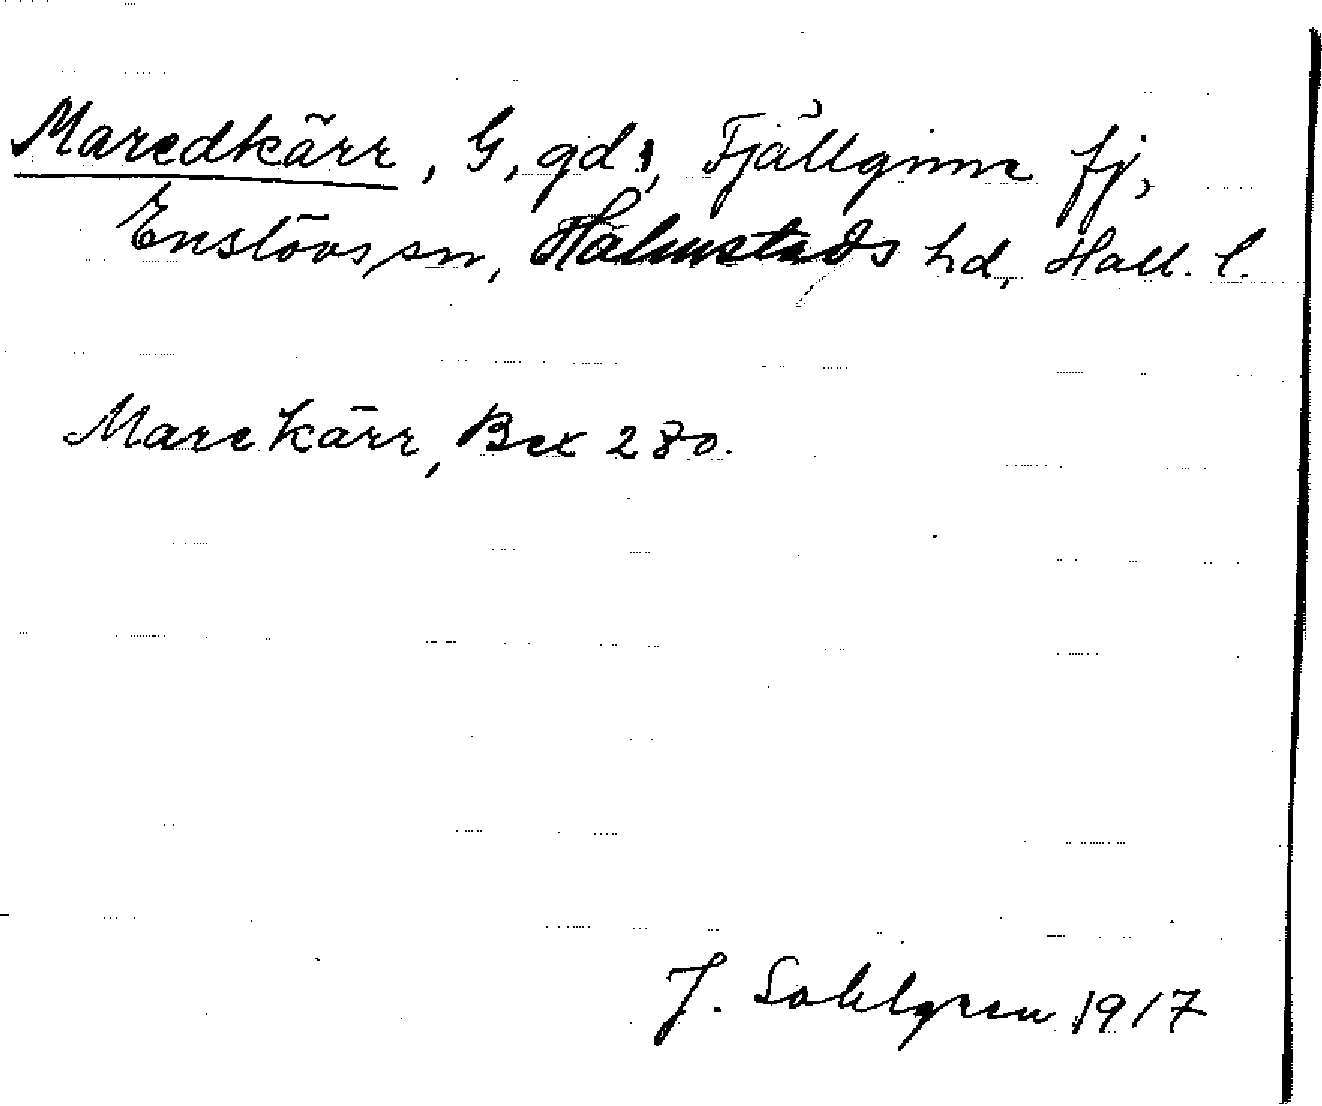 Maredkärr, G, gd, Fjällginne fj,
Enslövs sn, Halmstads hd, Hall. l.
Marekärr, Bex 280.
J. Sahlgren 1917